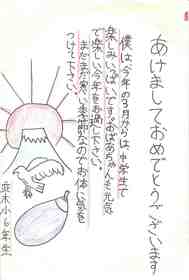 あけましておめでとうございます
僕は、今年の3月からは、中学生で
楽しみいっぱいです。おばあちゃんも元気
で楽しい今年をお過し下さい。
まだまだ寒い季節なのでお体に気を
つけて下さい。
並木小6年生